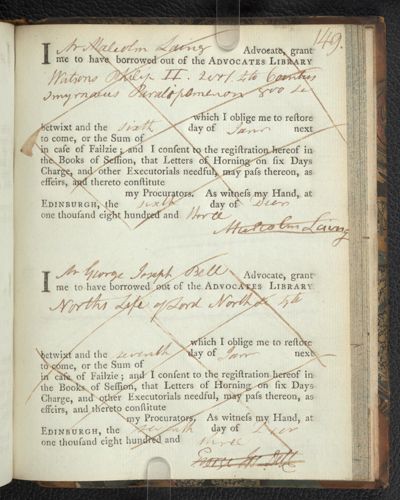 149.
I Mr Malcolm Laing Advocate, grant
me to have borrowed out of the ADVOCATES LIBRARY
Watsons Philip II. 2 vol 4to
Smyrnaeus Paralipomenon 8vo
which I oblige me to restore
betwixt and the sixth day of Janr next
to come, or the Sum of
in case of Failzie; and I consent to the registration hereof in
the Books of Session, that Letters of Horning on six Days
Charge, and other Executorials needful, may pass thereon, as
effeirs, and thereto constitute
my Procurators. As witness my Hand, at
EDINBURGH, the sixth day of Decr
one thousand eight hundred and three
Malcolm Laing
I Mr George Joseph Bell Advocate, grant
me to have borrowed out of the ADVOCATES LIBRARY
Norths Life of Lord North 4to
which I oblige me to restore
betwixt and the seventh day of Janr next
to come, or the Sum of
in case of Failzie; and I consent to the registration hereof in
the Books of Session, that Letters of Horning on six Days
Charge, and other Executorials needful, may pass thereon, as
effeirs, and thereto constitute
my Procurators. As witness my Hand, at
EDINBURGH, the seventh day of Decr
one thousand eight hundred and three
George Jos. Bell